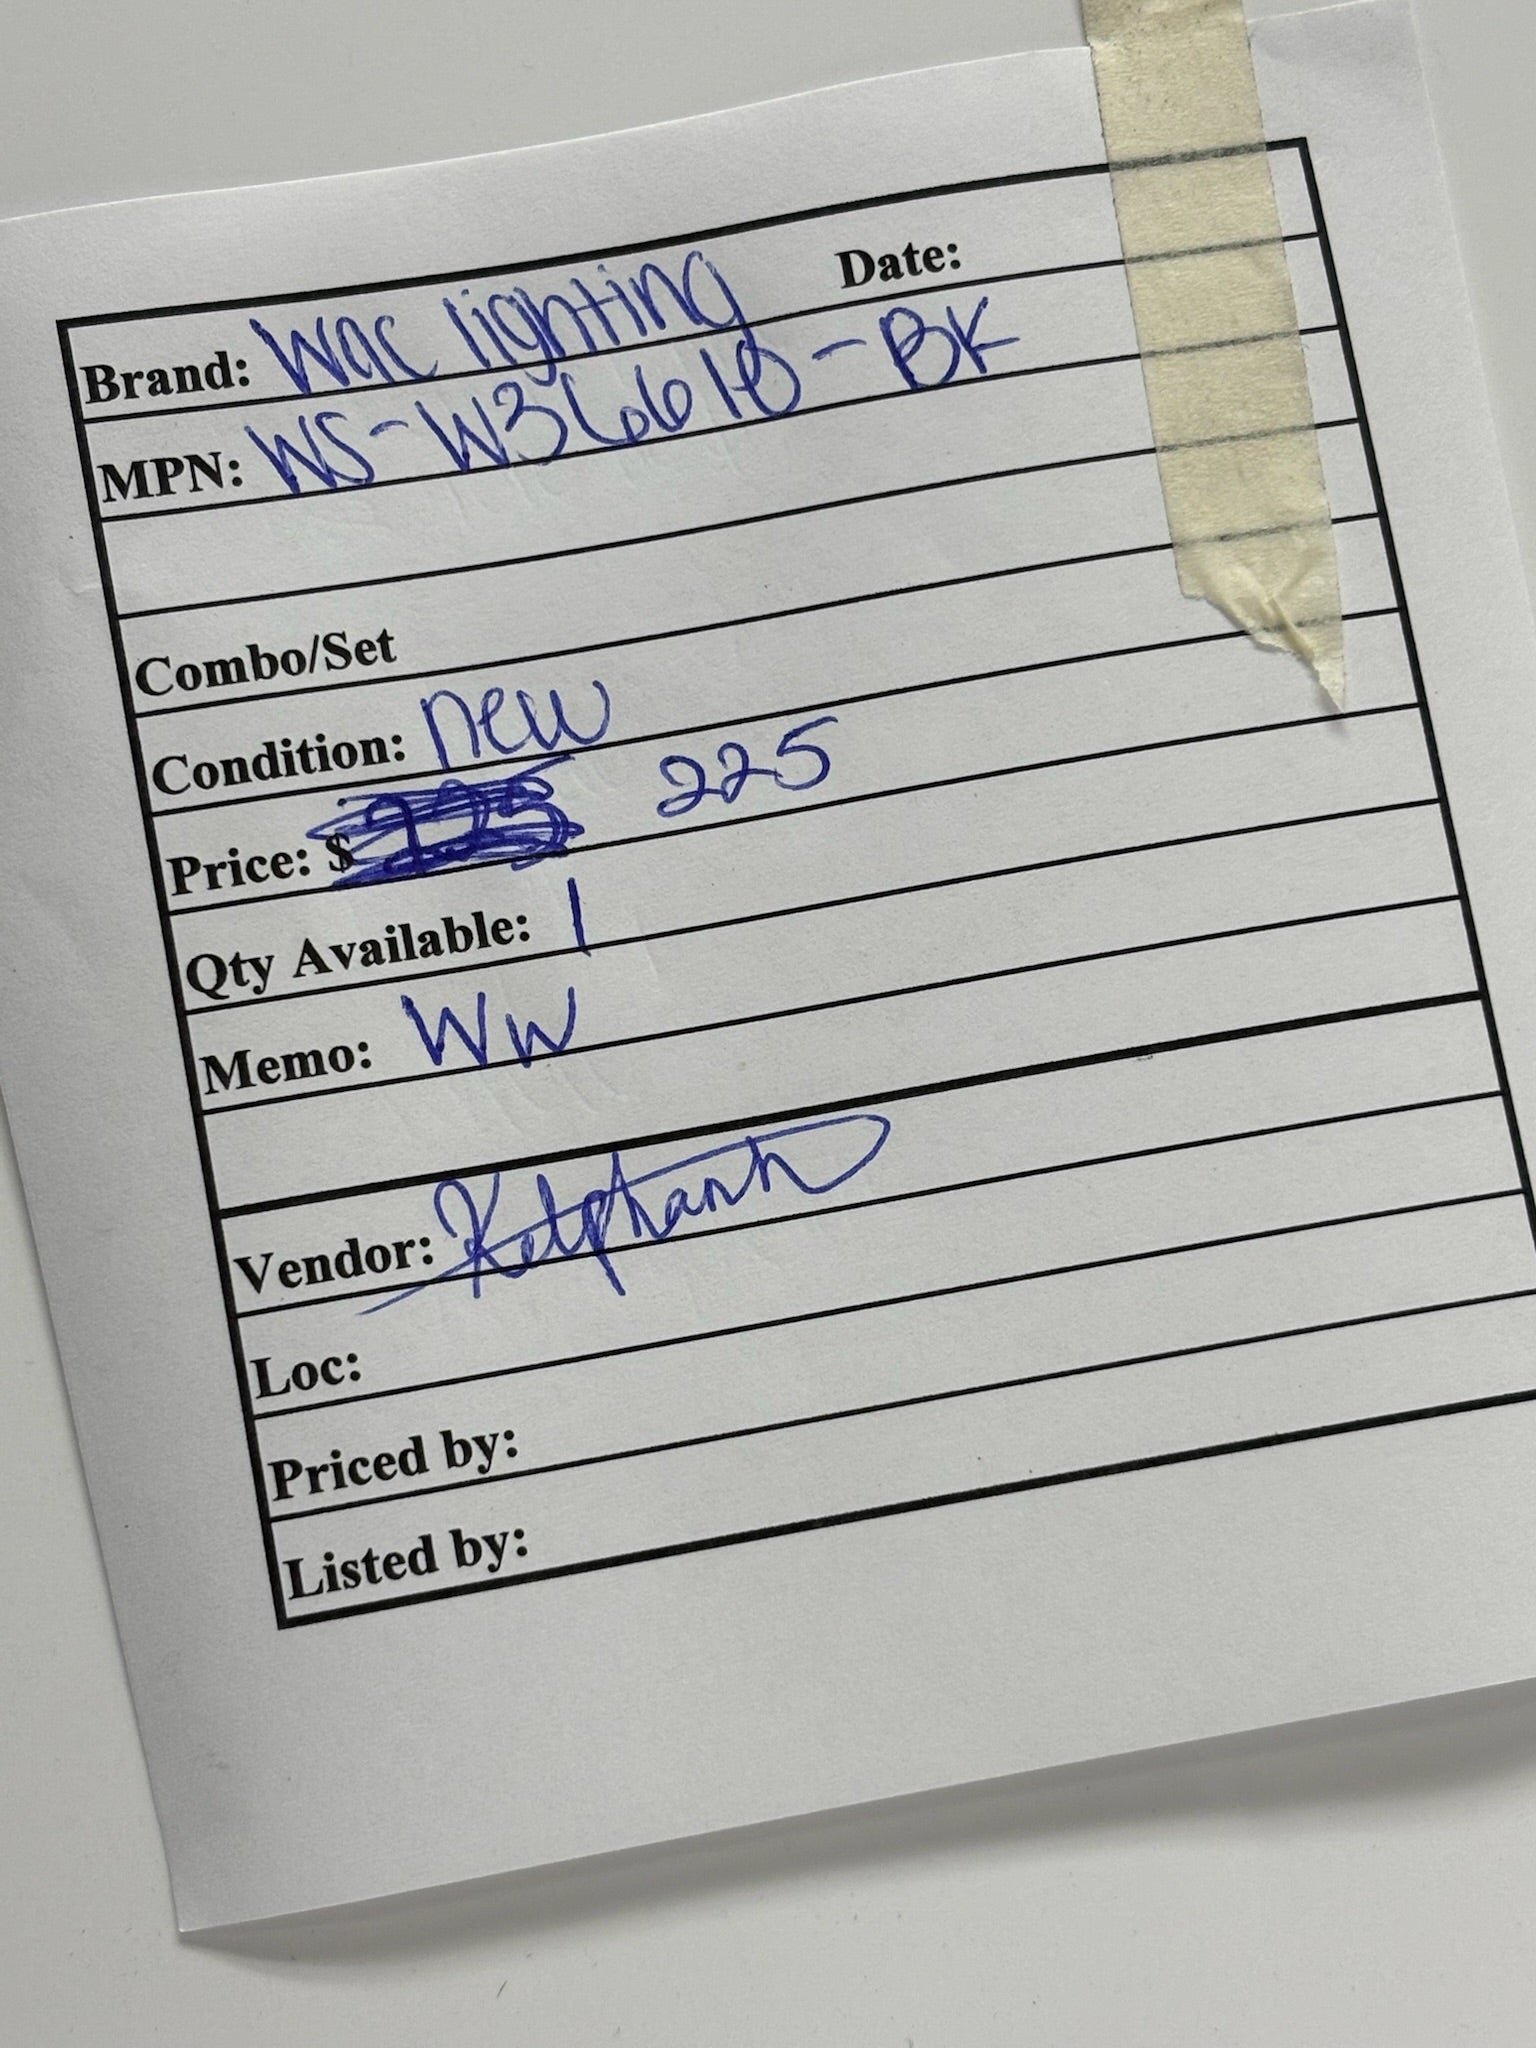 Brand: Wac lighting Date:
MPN: WS-W36610-BK
Combo/Set
Condition: new
Price: $ 225
Qty Available: 1
Memo: WW
Vendor:
Loc:
Priced by:
Listed by: